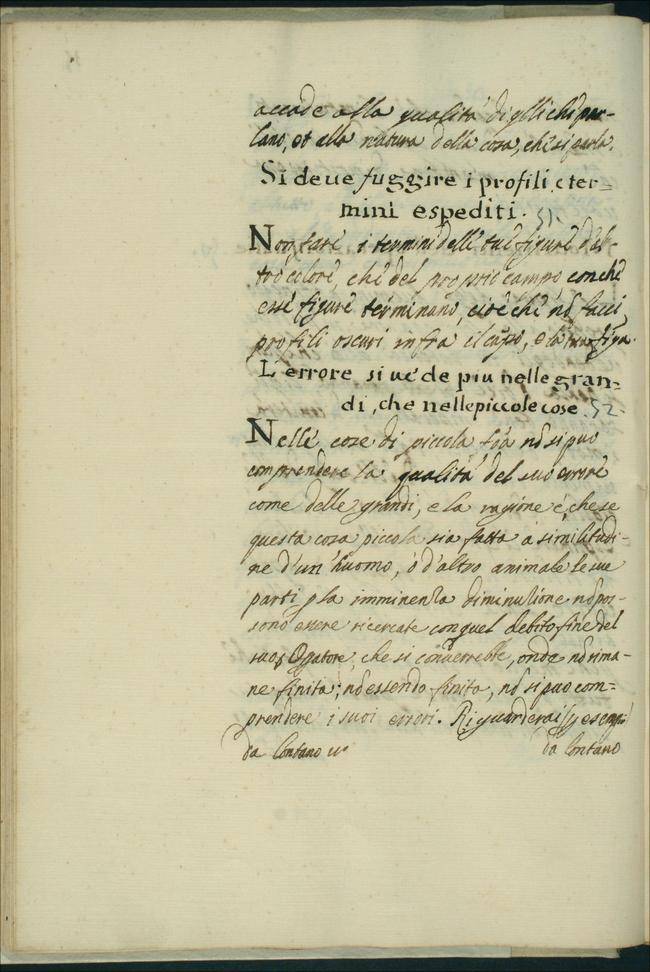 accade alla qualità di q̃lli chè par-
lano, et alla natura della cosa, chè si parla.
Si deue fuggire i profili, e ter=
mini espediti. 51.
Non fare i termini delle tuè figurè d'al-
tro colorè, chè del proprio campo, con chè
essè figurè terminano, cioè chè nõ facci
profili oscuri infra il cãpo, e la tua figa.
L'errore si uede piu nelle gran=
di, che nelle piccole cose. 52.
Nellè cose di piccola f̃oa nõ si puo
comprendere la qualità del suo errorè
come delle grandi, e la ragione è, che se
questa cosa piccola sia fatta a similitudi-
ne d'un huomo, ò d'altro animale le sue
parti p̃ la imminensa diminutione nõ pos-
sono essere ricercate con quel debito fine del
suo Opatore, che si conuerrebbe, onde nõ rima-
ne finita; nõ essendo finita, nõ si puo com=
prendere i suoi errori. Riguarderai p̃ esempio
da lontano uº da lontano